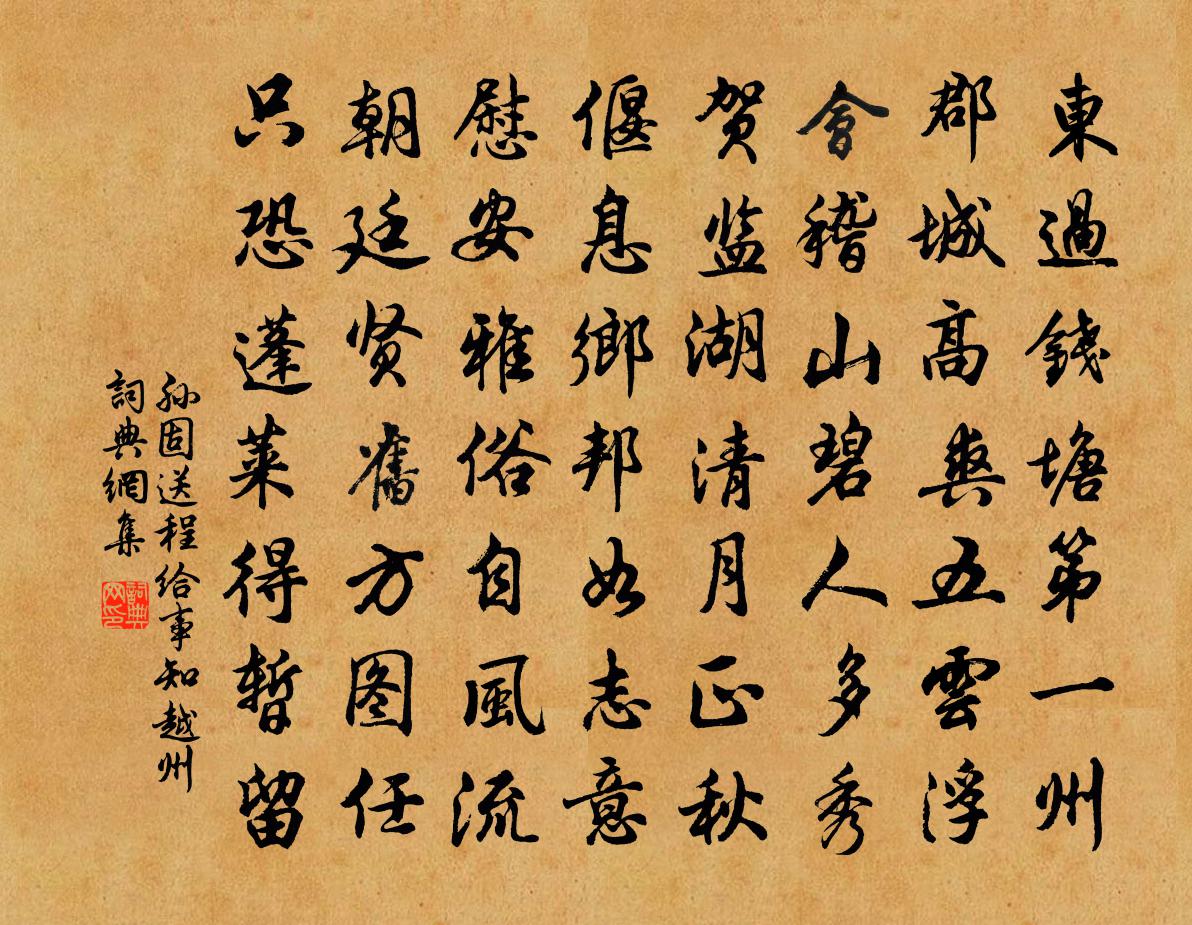 東過錢塘第一州
郡城高爽五雲浮
會稽山碧人多秀
贺监湖清月正秋
偃息鄉邦如志意
慰安雅俗自風流
朝廷贤舊方图任
只恐蓬莱得暫留
孙固送程给事知越州
詞典網集
詞典网印